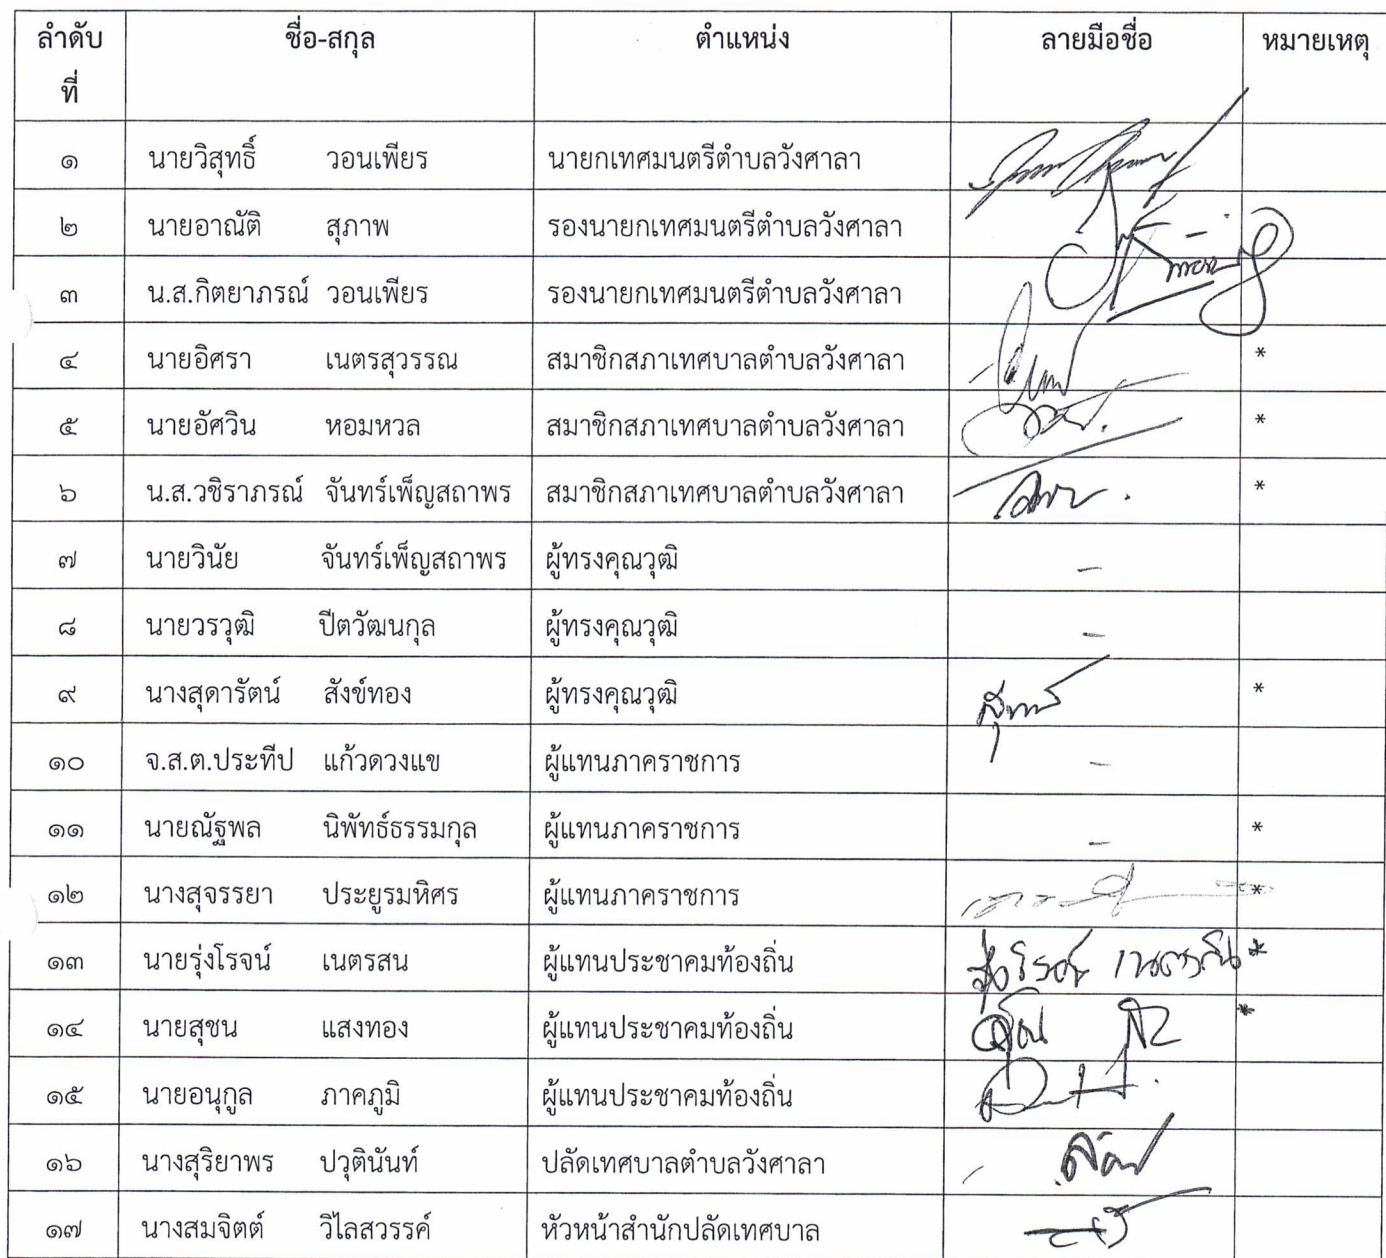 ลำดับที่ ชื่อ-สกุล ตำแหน่ง ลายมือชื่อ หมายเหตุ
๑ นายวิสุทธิ์ วอนเพียร นายกเทศมนตรีตำบลวังศาลา
๒ นายอาณัติ สุภาพ รองนายกเทศมนตรีตำบลวังศาลา
๓ น.ส.กิตยาภรณ์ วอนเพียร รองนายกเทศมนตรีตำบลวังศาลา
๔ นายอิศรา เนตรสุวรรณ สมาชิกสภาเทศบาลตำบลวังศาลา *
๕ นายอัศวิน หอมหวล สมาชิกสภาเทศบาลตำบลวังศาลา *
๖ น.ส.วชิราภรณ์ จันทร์เพ็ญสถาพร สมาชิกสภาเทศบาลตำบลวังศาลา *
๗ นายวินัย จันทร์เพ็ญสถาพร ผู้ทรงคุณวุฒิ -
๘ นายวรวุฒิ ปีตวัฒนกุล ผู้ทรงคุณวุฒิ -
๙ นางสุดารัตน์ สังข์ทอง ผู้ทรงคุณวุฒิ *
๑๐ จ.ส.ต.ประทีป แก้วดวงแข ผู้แทนภาคราชการ -
๑๑ นายณัฐพล นิพัทธ์ธรรมกุล ผู้แทนภาคราชการ - *
๑๒ นางสุจรรยา ประยูรมหิศร ผู้แทนภาคราชการ *
๑๓ นายรุ่งโรจน์ เนตรสน ผู้แทนประชาคมท้องถิ่น *
๑๔ นายสุชน แสงทอง ผู้แทนประชาคมท้องถิ่น *
๑๕ นายอนุกูล ภาคภูมิ ผู้แทนประชาคมท้องถิ่น
๑๖ นางสุริยาพร ปวุตินันท์ ปลัดเทศบาลตำบลวังศาลา
๑๗ นางสมจิตต์ วิไลสวรรค์ หัวหน้าสำนักปลัดเทศบาล